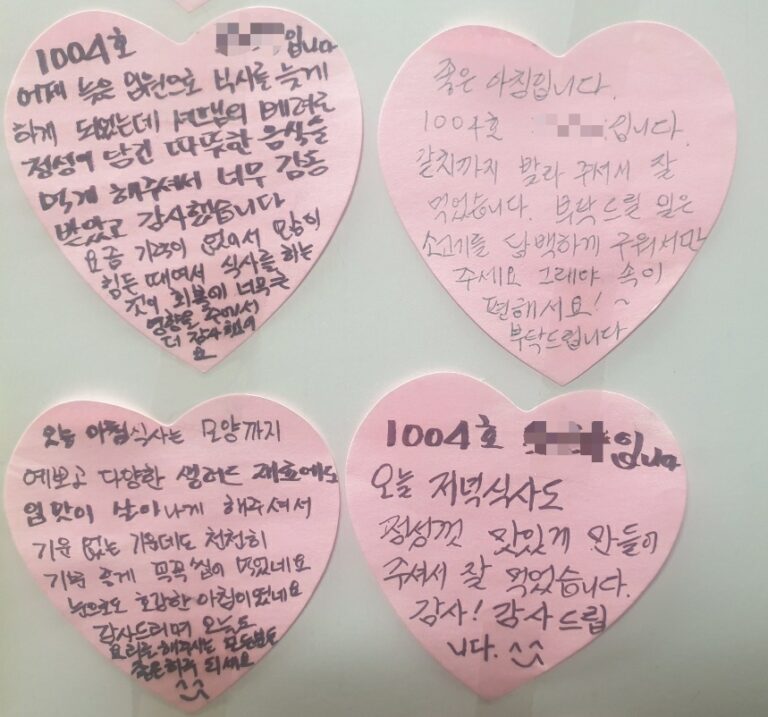 1004호 입니다
어제 늦은 입원으로 식사를 늦게
하게 되었는데 배려로
정성이 담긴 따뜻한 음식을
먹게 해주셔서 너무 감동
받았고 감사했습니다
요즘 기력이 없어서 많이
힘든 때여서 식사를 하는
것이 회복에 너무큰
영향을 주어서
더 감사해
요
좋은 아침입니다.
1004호 입니다.
갈치까지 발라 주셔서 잘
먹었습니다. 부탁드릴 일은
소고기를 담백하게 구워서만
주세요 그래야 속이
편해서요! ~
부탁드립니다
오늘 아침식사는 모양까지
예쁘고 다양한 샐러드 재료에도
입맛이 살아나게 해주셔서
기운 없는 가운데도 천천히
기분 좋게 꼭꼭 씹어 먹었네요
눈으로도 호강한 아침이었네요
감사드리며 오늘도
요리를 해주시는 모든분들
좋은하루 되세요
1004호 입니다
오늘 저녁식사도
정성껏 맛있게 만들어
주셔서 잘 먹었습니다.
감사! 감사드립
니다. ^^